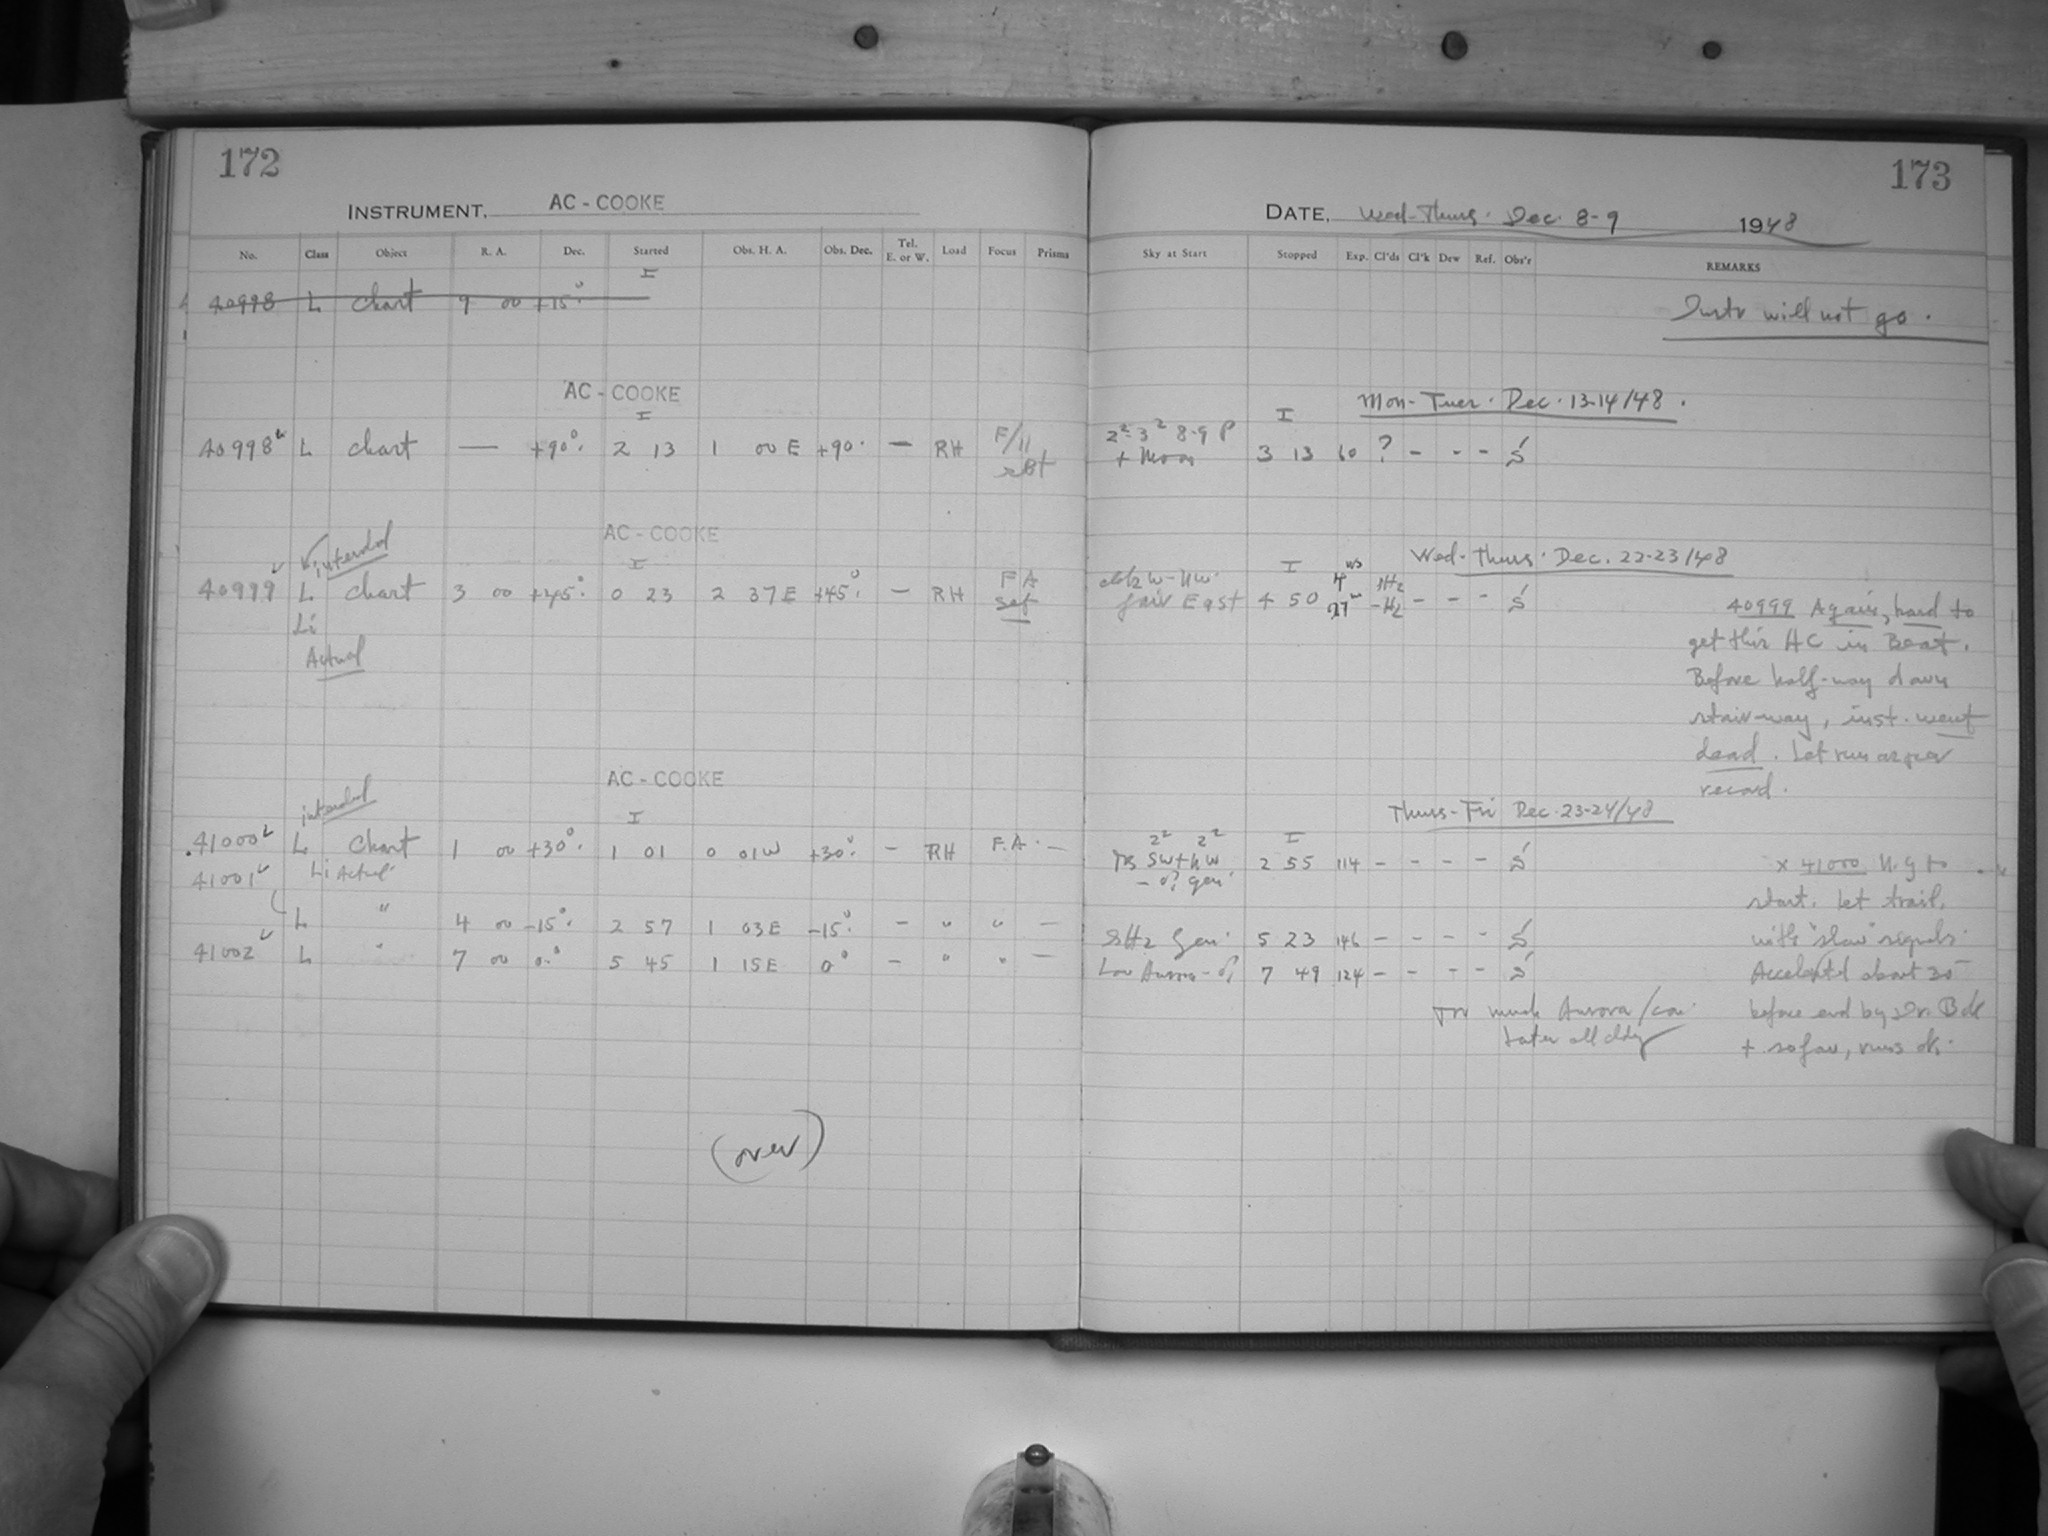 172
INSTRUMENT, AC - COOKE
No. Class Object R. A. Dec. Started Obs. H. A. Obs. Dec. Tel. E. or W. Load Focus Prisms
I
40998 L chart 9 00 +15°
AC - COOKE
I
40998 L chart — +90° 2 13 1 00 E +90° — RH F/11
AC - COOKE
intended I
40999 L chart 3 00 +45° 0 23 2 37 E +45° — RH F A
Li
Actual
AC - COOKE
intended I
41000 L Chart 1 00 +30° 1 01 0 01 W +30° — RH F.A. —
41001 Li Actual
L " 4 00 -15° 2 57 1 03 E -15° — " " —
41002 L " 7 00 0° 5 45 1 15 E 0° — " " —
(over)
173
DATE, Wed-Thurs. Dec. 8-9 1948
Sky at Start Stopped Exp. Cl'ds Cl'k Dew Ref. Obs'r REMARKS
Instr will not go.
I Mon-Tues. Dec. 13-14/48.
2² 3² 8-9 P
+ Moon 3 13 60 ? - - - S
I Wed-Thurs. Dec. 22-23/48
W-NW
fair East 4 50 27 -Hz - - - S
40999 Again, hard to
get this HC in Beat.
Before half-way down
stair-way, inst. went
dead. Let run as per
record.
Thurs-Fri Dec. 23-24/48
2² 2² I
SW + NW 2 55 114 - - - - S
gen.
x 41000 N.G to
start. Let trail,
Gen. 5 23 146 - - - - S
with "slow" signals.
Low Aurora 7 49 124 - - - - S
Accelerated about 30
much Aurora
before end by Dr. Bok
Later all cldy
+ so far, runs ok.